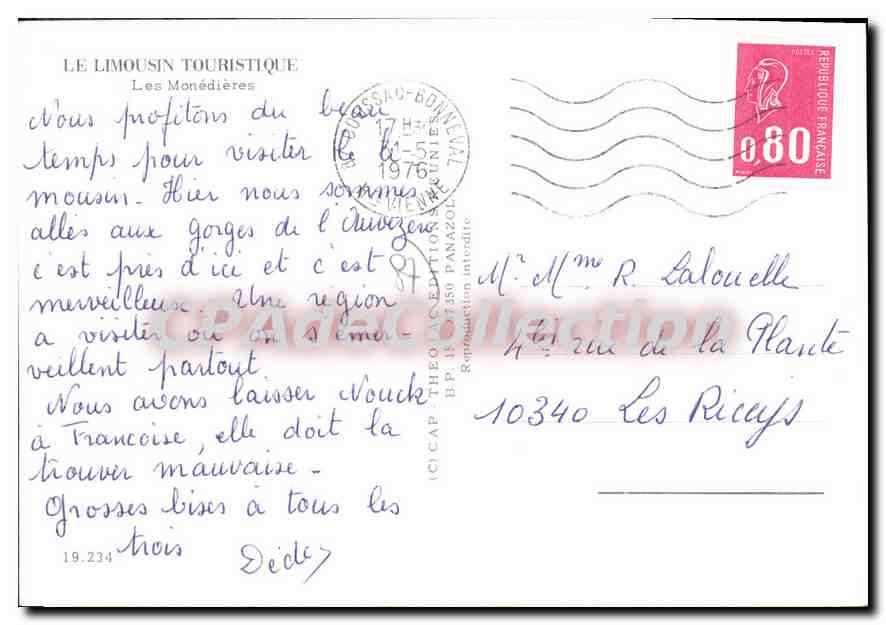 LE LIMOUSIN TOURISTIQUE
Les Monédières
Nous profitons du beau
temps pour visiter le li
mousin. Hier nous sommes
allés aux gorges de l'Auvézère
c'est près d'ici et c'est
merveilleux. Une région
a visiter où on s'émer-
veillent partout
Nous avons laisser Nouck
à Francoise, elle doit la
trouver mauvaise -
Grosses bises à tous les
trois
Dédé
19.234
(C) CAP - THEOJAC EDITIONS
B.P. 15 87350 PANAZOL
Reproduction interdite
87
BOISSAC-BONNEVAL
17H
-5
1976
VIENNE
POSTES
REPUBLIQUE FRANÇAISE
0,80
Mr Mme R. Lalouelle
4bis rue de la Plante
10340 Les Riceys
CPAdeCollection